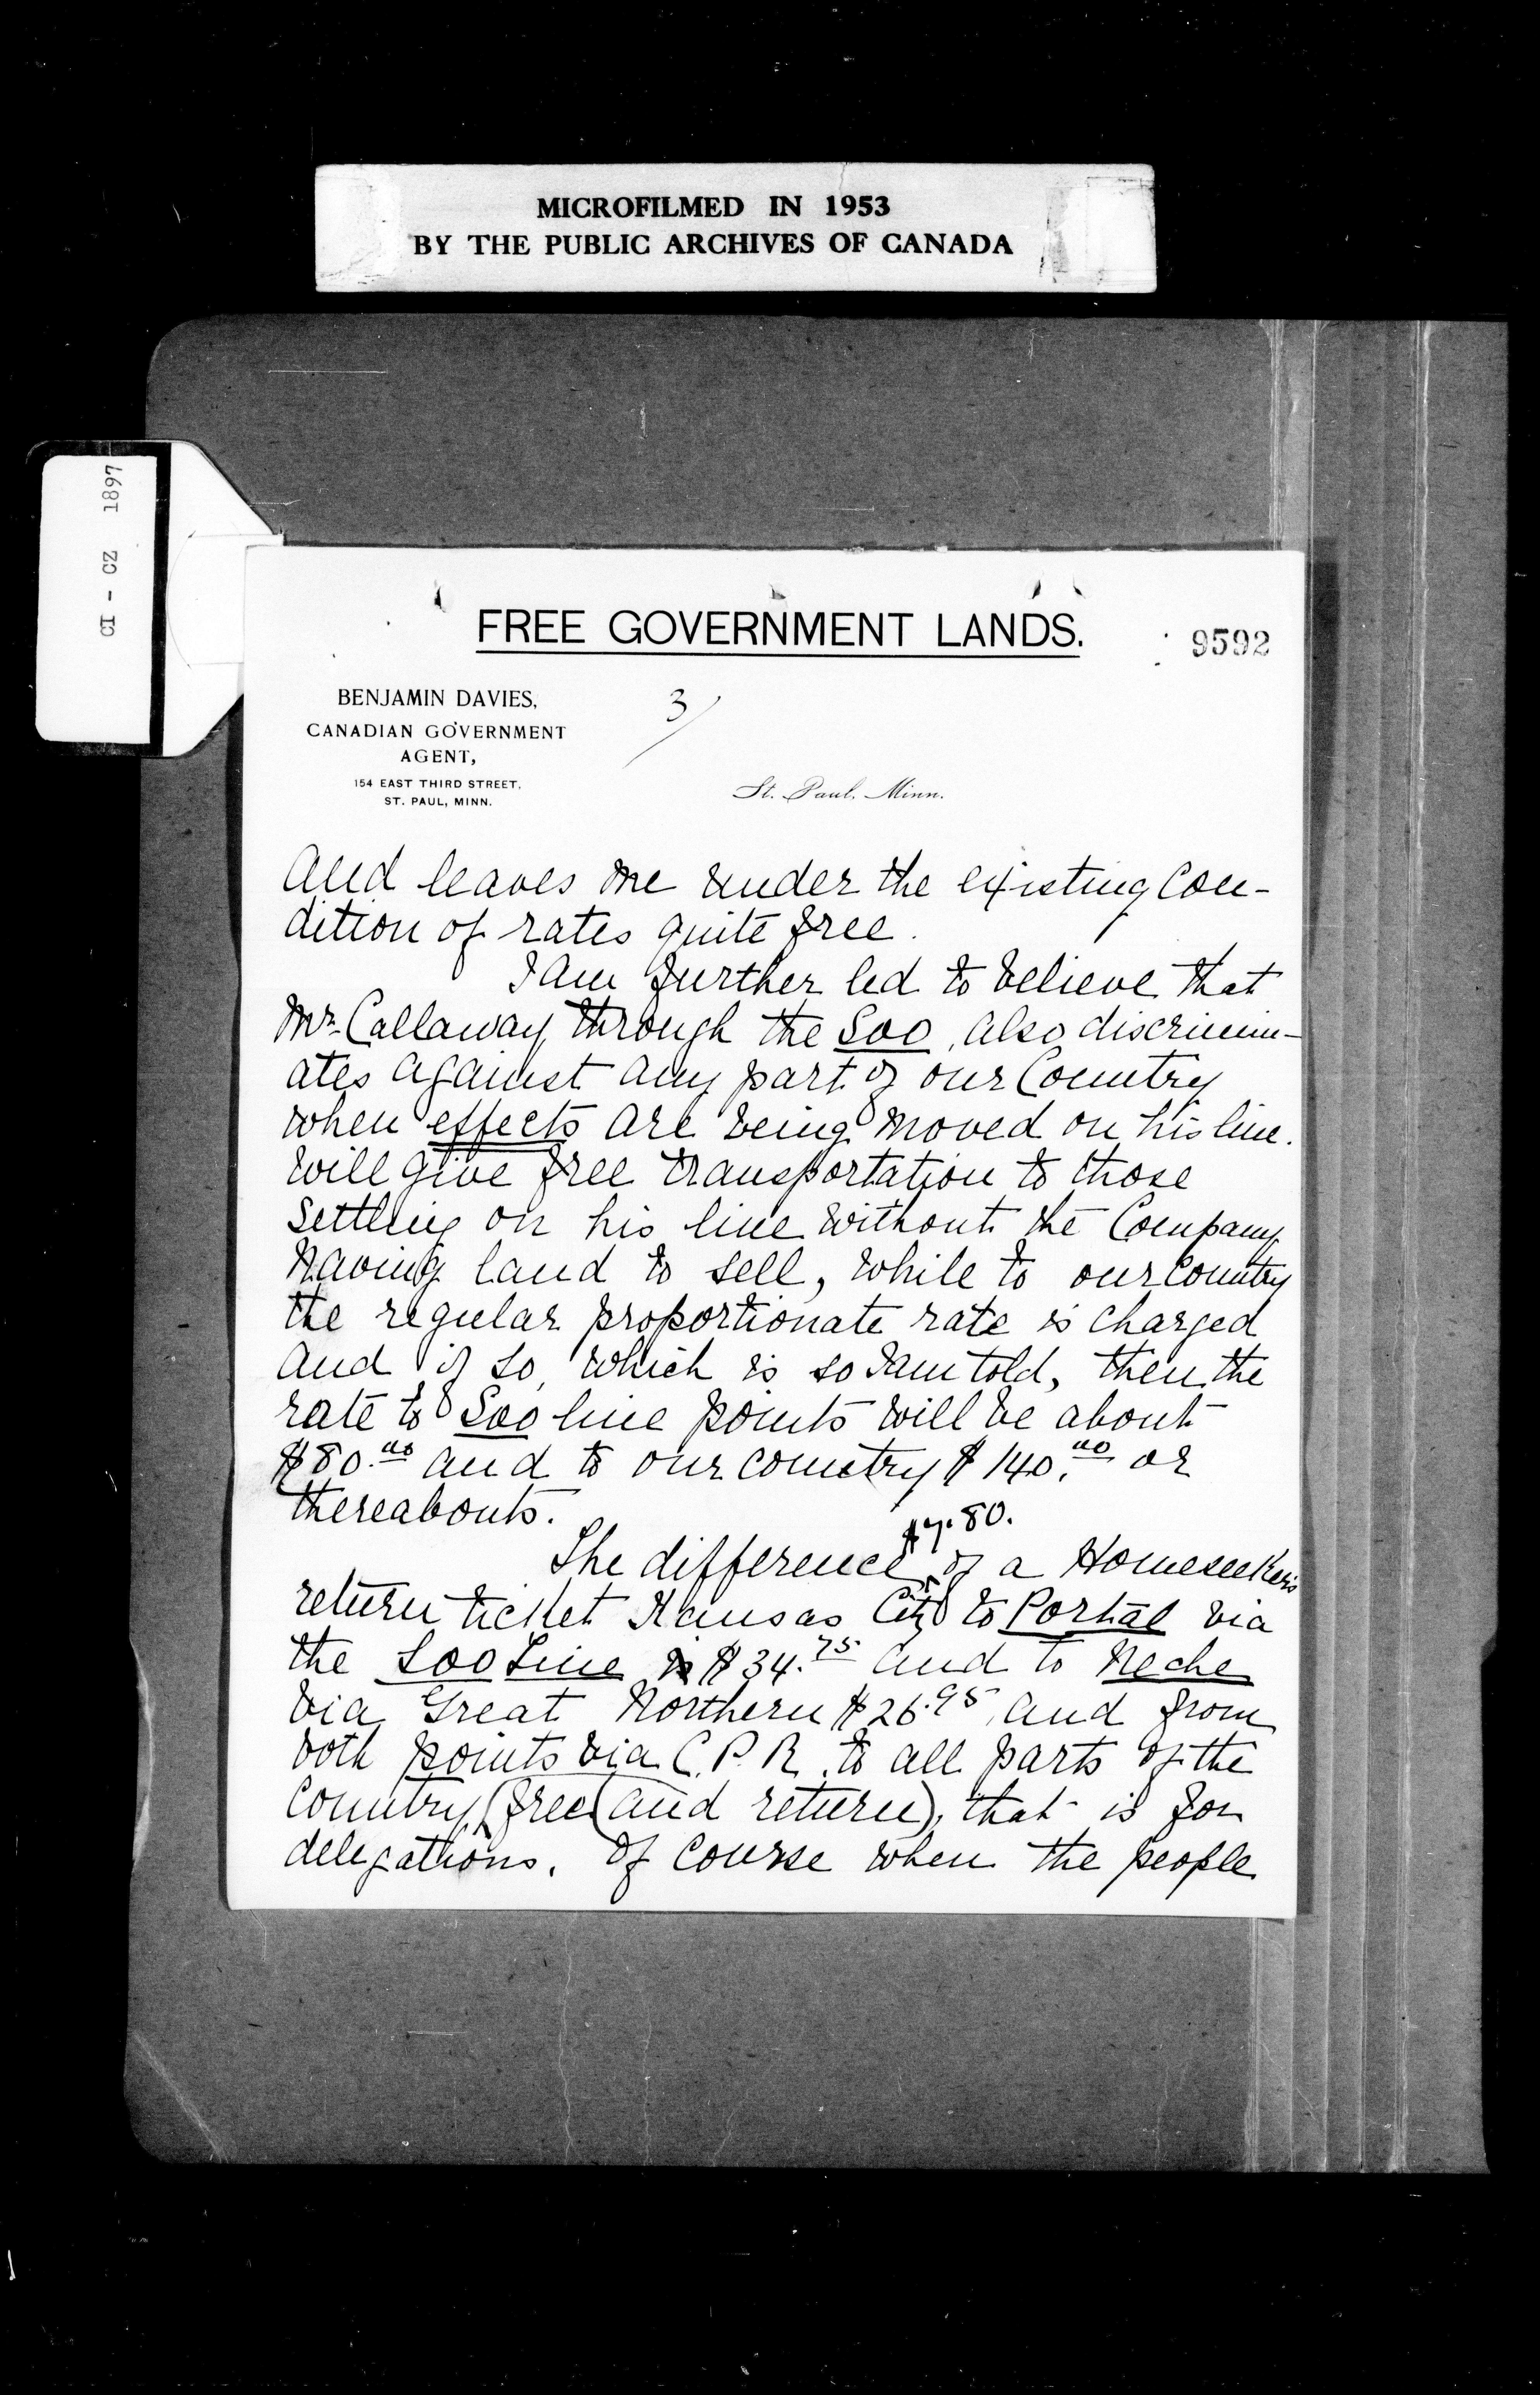 MICROFILMED IN 1953
BY THE PUBLIC ARCHIVES OF CANADA
CI - CZ 1897
FREE GOVERNMENT LANDS.
9592
BENJAMIN DAVIES,
CANADIAN GOVERNMENT
AGENT,
154 EAST THIRD STREET,
ST. PAUL, MINN.
3/
St. Paul, Minn.
and leaves me under the existing con-
dition of rates quite free.
I am further led to believe that
Mr. Callaway, through the Soo, also discrimin-
ates against any part of our Country
when effects are being moved on his line.
Will give free transportation to those
settling on his line without the Company
having land to sell, while to our country
the regular proportionate rate is charged
and if so, which is so I am told, then the
rate to Soo line points will be about
$80.00 and to our country $140.00 or
thereabouts.
$7.80.
The difference of a Homeseekers
return ticket Kansas City to Portal via
the Soo Line is $34.75 and to Neche
via Great Northern $26.95, and from
both points via C.P.R. to all parts of the
Country, (free (and return), that is for
delegations. Of course when the people